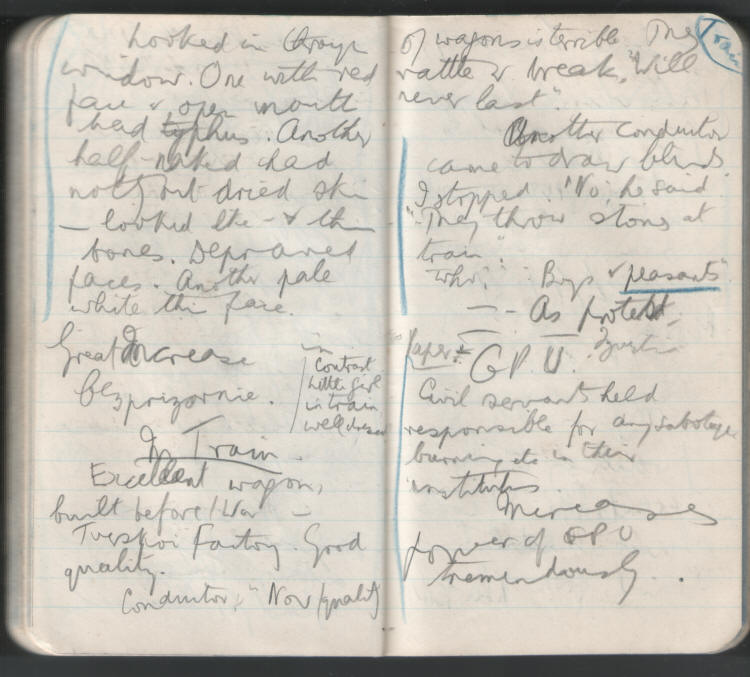 Looked in through
window. One with red
face & open mouth
had typhus. Another
half-naked had
nothing but dried skin
— looked like — & thin
bones. Depraved
faces. Another pale
white thin face.
Great Increase
Bezprizornie.
in
contrast
little girl
in train
well dressed
In Train.
Excellent wagon,
built before War —
Tverskoi Factory. Good
quality.
Conductor, "Now quality
Train
of wagons is terrible. They
rattle & break, "Will
never last".
Another conductor
came to draw blinds.
I stopped. "No, he said
"They throw stones at
train."
Who? Boys & peasants"
— - As protest
Paper:
G P U.
Civil servants held
responsible for any sabotage
burning etc in their
institutes.
Increases
power of GPU
tremendously.